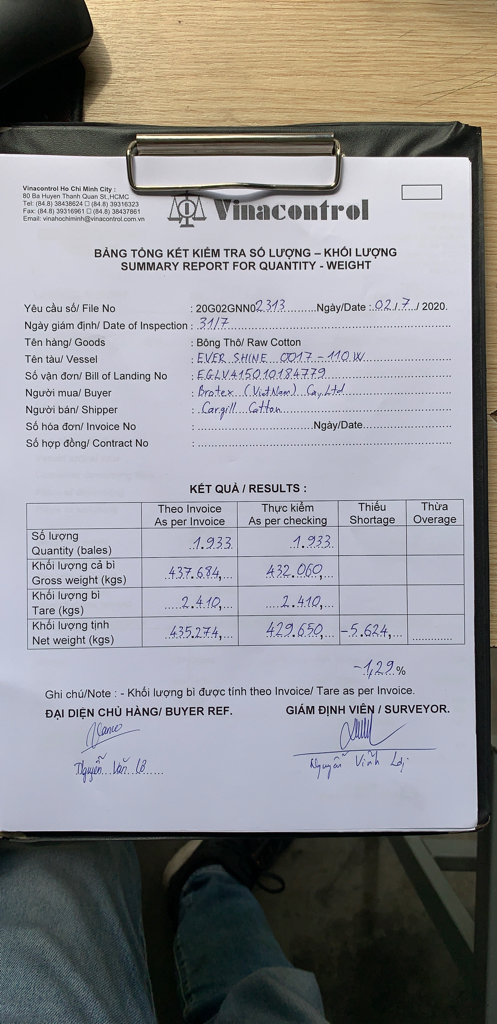 Vinacontrol Ho Chi Minh City :
80 Ba Huyen Thanh Quan St.,HCMC
Tel: (84.8) 38438624 □ (84.8) 39316323
Fax: (84.8) 39316961 □ (84.8) 38437861
Email: vinahochiminh@vinacontrol.com.vn
Vinacontrol
BẢNG TỔNG KẾT KIỂM TRA SỐ LƯỢNG – KHỐI LƯỢNG
SUMMARY REPORT FOR QUANTITY - WEIGHT
Yêu cầu số/ File No : 20G02GNN02313 Ngày/Date : 02/7/ 2020.
Ngày giám định/ Date of Inspection : 31/7
Tên hàng/ Goods : Bông Thô/ Raw Cotton
Tên tàu/ Vessel : EVER SHINE 0017-110W
Số vận đơn/ Bill of Landing No : EGLV415010184779
Người mua/ Buyer : Brotex (VietNam) Coy.Ltd
Người bán/ Shipper : Cargill Cotton
Số hóa đơn/ Invoice No : Ngày/Date
Số hợp đồng/ Contract No :
KẾT QUẢ / RESULTS :
Theo Invoice Thực kiểm Thiếu Thừa
As per Invoice As per checking Shortage Overage
Số lượng
Quantity (bales) 1.933 1.933
Khối lượng cả bì
Gross weight (kgs) 437.684, 432.060,
Khối lượng bì
Tare (kgs) 2.410, 2.410,
Khối lượng tịnh
Net weight (kgs) 435.274, 429.650, -5.624,
-1,29 %
Ghi chú/Note : - Khối lượng bì được tính theo Invoice/ Tare as per Invoice.
ĐẠI DIỆN CHỦ HÀNG/ BUYER REF. GIÁM ĐỊNH VIÊN / SURVEYOR.
Nguyễn Văn Nguyễn Vĩnh